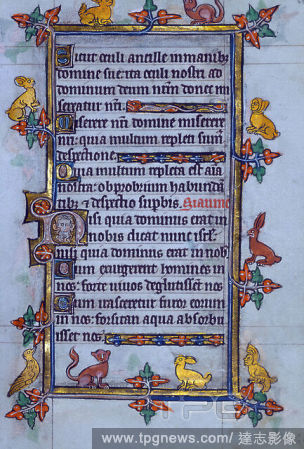 Sicut oculi ancille in manib;
domine sue: ita oculi nostri ad
dominum deum nrm donec mi
seratur nri.
Miserere nri domine miserere
nri: quia multum repleti sum
despectione.
Quia multum repleta est aia
nostra: obprobrium habunda
tib; & despectio supbis.
Nisi quia dominus erat in
nobis dicat nunc isrl:
nisi quia dominus erat in nob
Cum exurgerent homines in
nos: forte vivos deglutissent nos
Cum irasceretur furor eorum
in nos: forsitan aqua absorbu
isset nos
TPG
www.tpgnews.com/ 達志影像